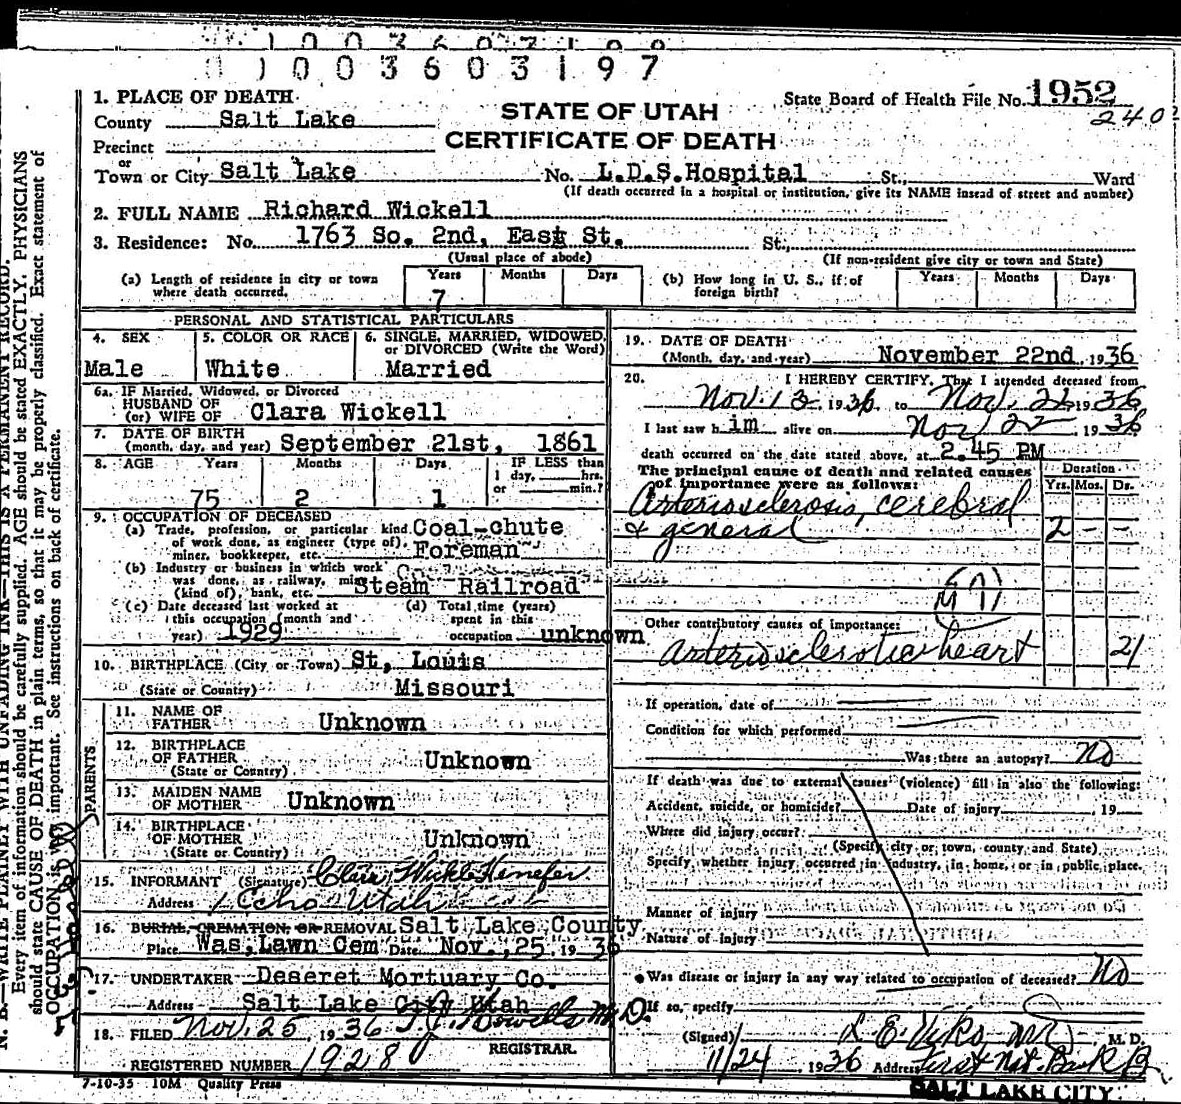 1 0 0 3 6 0 3 1 9 7
1. PLACE OF DEATH
State Board of Health File No. 1952
County Salt Lake
STATE OF UTAH
240
Precinct
CERTIFICATE OF DEATH
or
Town or City Salt Lake No. L.D.S. Hospital St., Ward
(If death occurred in a hospital or institution, give its NAME insead of street and number)
2. FULL NAME Richard Wickell
3. Residence: No. 1763 So. 2nd, East St. St.,
(Usual place of abode) (If non-resident give city or town and State)
(a) Length of residence in city or town where death occurred. Years 7 Months Days
(b) How long in U. S., if of foreign birth? Years Months Days
PERSONAL AND STATISTICAL PARTICULARS
4. SEX 5. COLOR OR RACE 6. SINGLE, MARRIED, WIDOWED, or DIVORCED (Write the Word)
Male White Married
6a. IF Married, Widowed, or Divorced
HUSBAND OF
(or) WIFE OF Clara Wickell
7. DATE OF BIRTH
(month, day, and year) September 21st, 1861
8. AGE Years Months Days IF LESS than
1 day, hrs.
or min.?
75 2 1
9. OCCUPATION OF DECEASED
(a) Trade, profession, or particular kind Coal-chute
of work done, as engineer (type of),
miner, bookkeeper, etc. Foreman
(b) Industry or business in which work
was done, as railway, mine
(kind of), bank, etc. Steam Railroad
(c) Date deceased last worked at
this occupation (month and
year) 1929
(d) Total time (years)
spent in this
occupation unknown
10. BIRTHPLACE (City or Town) St, Louis
(State or Country) Missouri
PARENTS
11. NAME OF
FATHER Unknown
12. BIRTHPLACE
OF FATHER Unknown
(State or Country)
13. MAIDEN NAME
OF MOTHER Unknown
14. BIRTHPLACE
OF MOTHER Unknown
(State or Country)
15. INFORMANT (Signature) Clara Wickle Henefer
Address Echo Utah
16. BURIAL, CREMATION, OR REMOVAL Salt Lake County
Place Was, Lawn Cem Date Nov., 25, 1936
17. UNDERTAKER Deseret Mortuary Co.
Address Salt Lake City Utah
18. FILED Nov. 25, 1936 T. J. Howells M.D.
REGISTRAR.
REGISTERED NUMBER 1928
7-10-35 10M Quality Press
19. DATE OF DEATH
(Month, day, and year) November 22nd, 1936
20. I HEREBY CERTIFY, That I attended deceased from
Nov. 13, 1936 to Nov. 22 1936
I last saw him alive on Nov 22, 1936
death occurred on the date stated above, at 2.45 PM
The principal cause of death and related causes
of importance were as follows:
Duration
Yrs. Mos. Ds.
Arteriosclerosis, cerebral
& general 2 - -
97
Other contributory causes of importance:
Arteriosclerotic heart 21
If operation, date of
Condition for which performed
Was there an autopsy? No
If death was due to external causes (violence) fill in also the following:
Accident, suicide, or homicide? Date of injury , 19
Where did injury occur?
(Specify city or town, county, and State)
Specify whether injury occurred in industry, in home, or in public place.
Manner of injury
Nature of injury
Was disease or injury in any way related to occupation of deceased? No
If so, specify
(Signed) L. E. Viko M. D.
11/24, 1936 Address First Nat. Bank B
SALT LAKE CITY
N. B.—WRITE PLAINLY WITH UNFADING INK—THIS IS A PERMANENT RECORD.
Every item of information should be carefully supplied. AGE should be stated EXACTLY. PHYSICIANS
should state CAUSE OF DEATH in plain terms, so that it may be properly classified. Exact statement of
OCCUPATION is very important. See instructions on back of certificate.